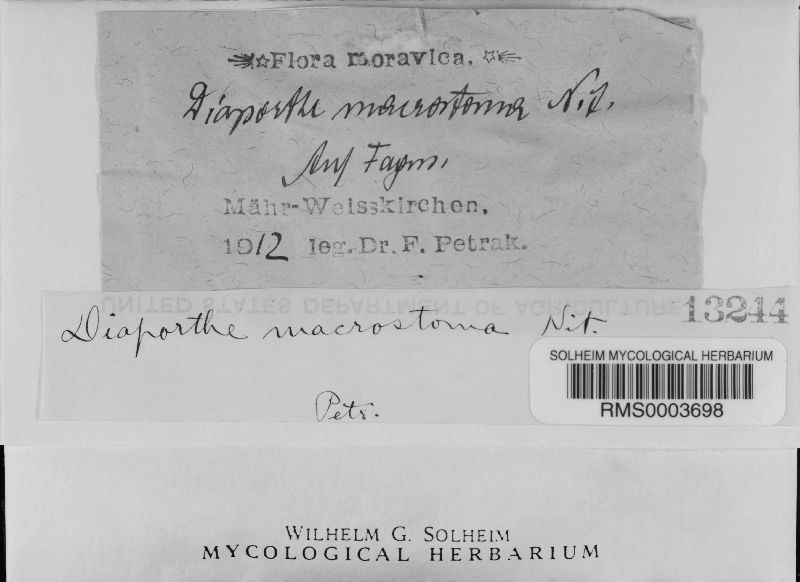 Flora moravica.
Diaporthe macrostoma Nit.
Auf Fagus.
Mähr-Weisskirchen.
1912 leg. Dr. F. Petrak.
UNITED STATES DEPARTMENT OF AGRICULTURE
13244
Diaporthe macrostoma Nit.
Petr.
SOLHEIM MYCOLOGICAL HERBARIUM
RMS0003698
WILHELM G. SOLHEIM
MYCOLOGICAL HERBARIUM